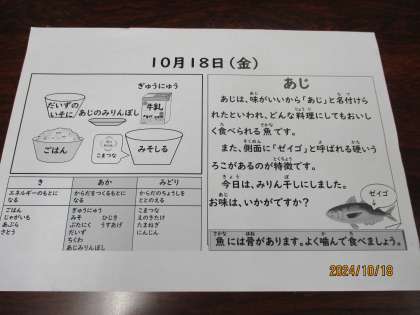 10月18日(金)
だいずの
いそに
ぎゅうにゅう
牛乳
あじのみりんぼし
ごはん
こまつな
みそしる
き
あか
みどり
エネルギーのもとに
なる
からだをつくるもとに
なる
からだのちょうしを
ととのえる
ごはん
じゃがいも
あぶら
さとう
ぎゅうにゅう
みそ ひじき
ぶたにく うすあげ
だいず
ちくわ
あじみりんぼし
こまつな
えのきたけ
たまねぎ
にんじん
あじ
あじは、味がいいから「あじ」と名付けら
れたといわれ、どんな料理にしてもおいし
く食べられる魚です。
また、側面に「ゼイゴ」と呼ばれる硬いう
ろこがあるのが特徴です。
今日は、みりん干しにしました。
お味は、いかがですか?
ゼイゴ
魚には骨があります。よく噛んで食べましょう。
2024/10/18